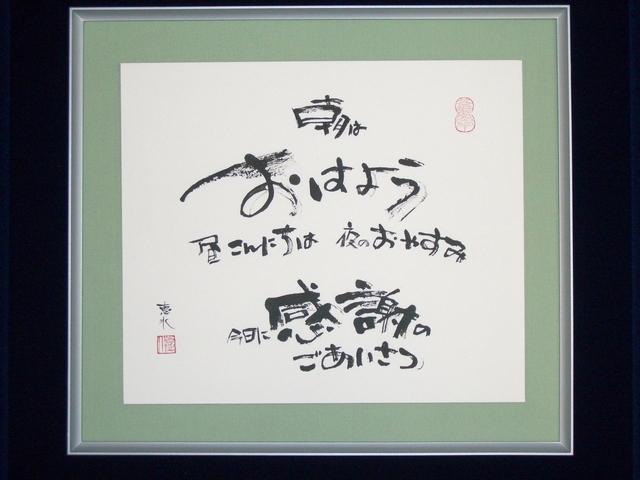 朝は
おはよう
昼こんにちは 夜のおやすみ
今日に感謝の
ごあいさつ
恵水